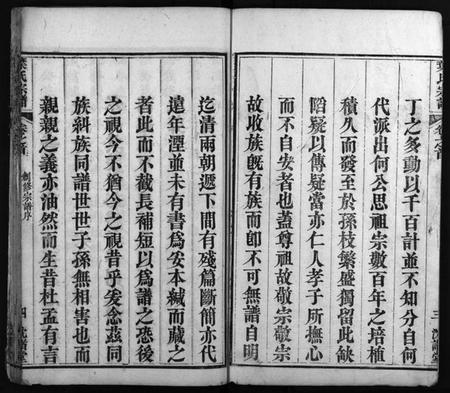 丁之多動以千百計並不知分自何
代派出何公思祖宗數百年之培植
積久而發至於孫枝繁盛獨留此缺
陷疑以傳疑當亦仁人孝子所撫心
而不自安者也蓋尊祖故敬宗敬宗
故收族旣有族而卽不可無譜自明
葉氏宗譜
卷之首
三
迄清兩朝遞下間有殘篇斷簡亦代
遠年湮並未有書爲安本緘而藏之
者此而不截長補短以爲譜之恐後
之視今不猶今之視昔乎爰念茲同
族糾族同譜世世子孫無相害也而
親親之義亦油然而生昔杜孟有言
葉氏宗譜
卷之首
創修宗譜序
四